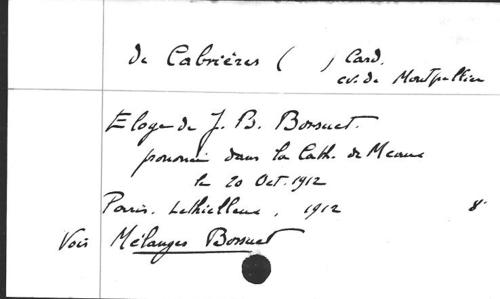 de Cabrières ( ) Card.
ev. de Montpellier
Eloge de J. B. Bossuet.
prononcé dans la Cath. de Meaux
le 20 Oct. 1912
Paris. Lethielleux, 1912 8°
Vois Mélanges Bossuet